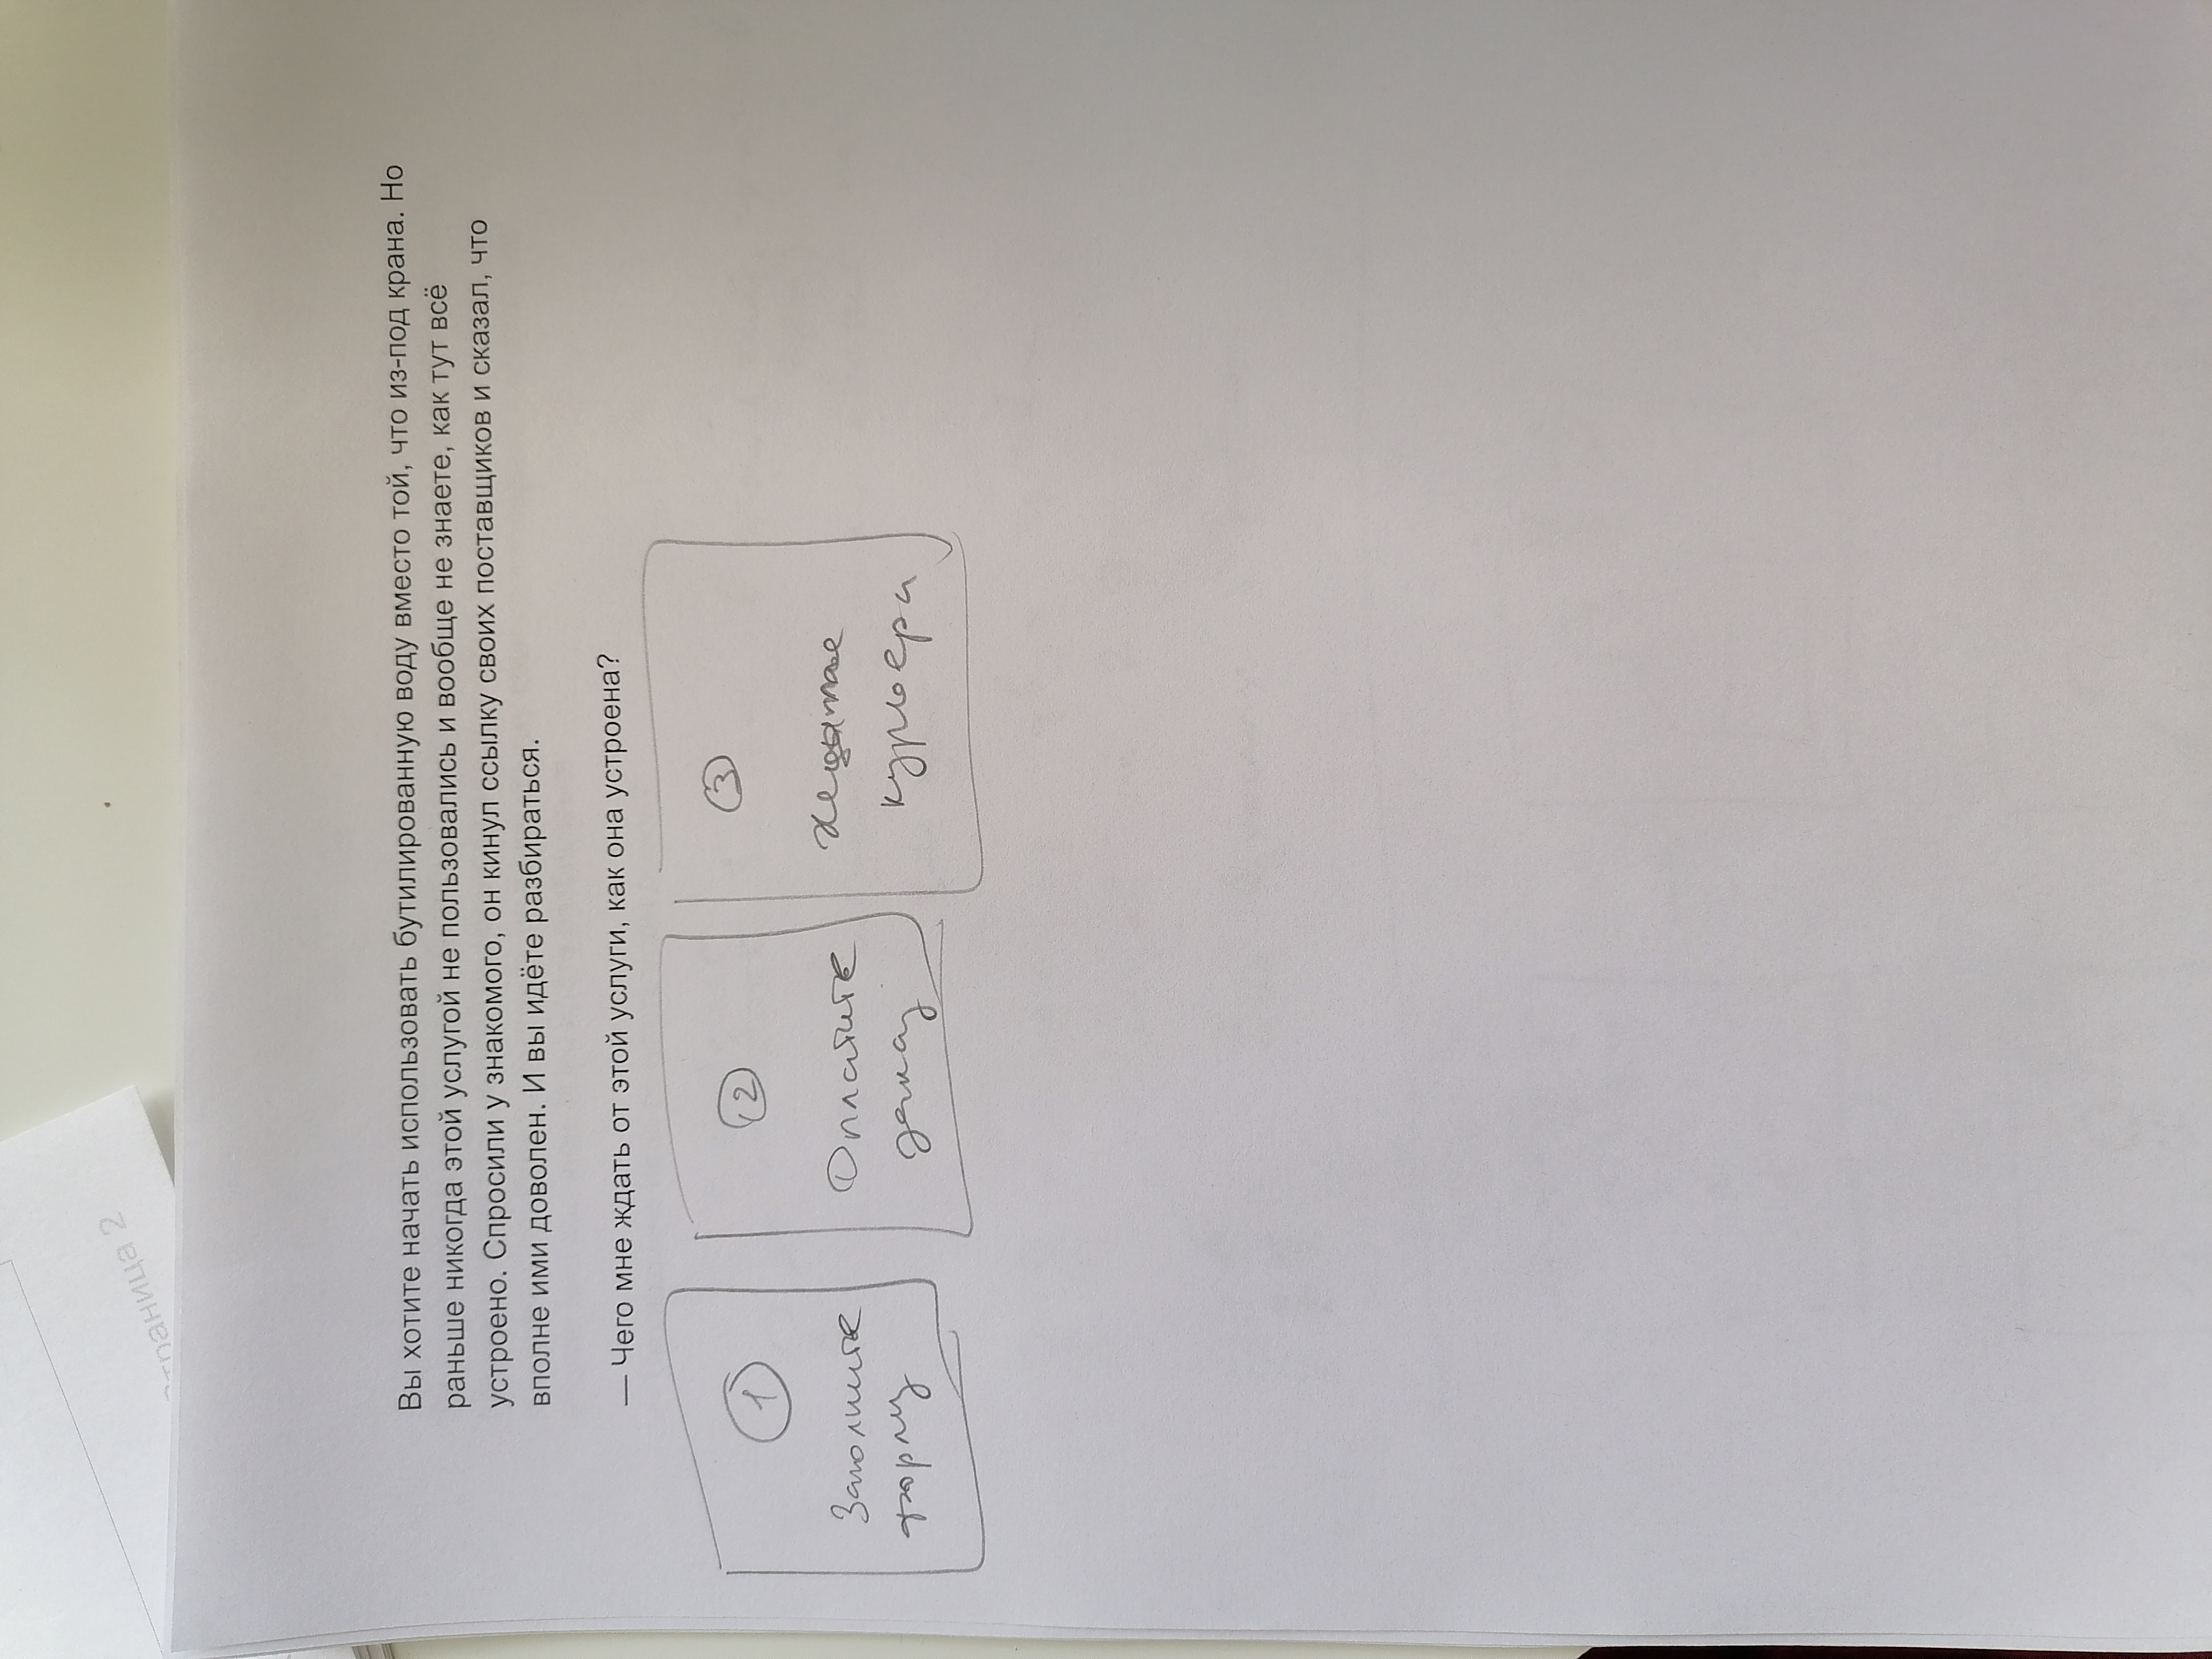 Страница 2
Вы хотите начать использовать бутилированную воду вместо той, что из-под крана. Но
раньше никогда этой услугой не пользовались и вообще не знаете, как тут всё
устроено. Спросили у знакомого, он кинул ссылку своих поставщиков и сказал, что
вполне ими доволен. И вы идёте разбираться.
— Чего мне ждать от этой услуги, как она устроена?
1
Заполните
форму
2
Оплатите
заказ
3
курьера